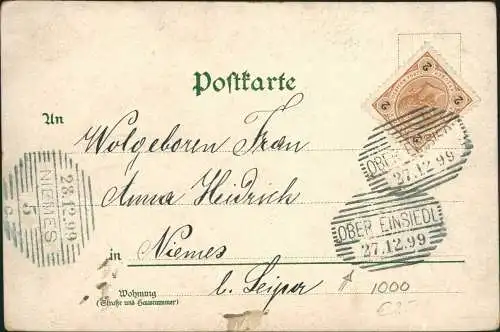 Postkarte
2 2 2
OBER EINSIEDL
27.12.99
An Wolgeboren Frau
Anna Heidrich
in Niemes
b. Leipa
OBER EINSIEDL
27.12.99
NIEMES
28.12.99
5
Wohnung
(Straße und Hausnummer)
1000